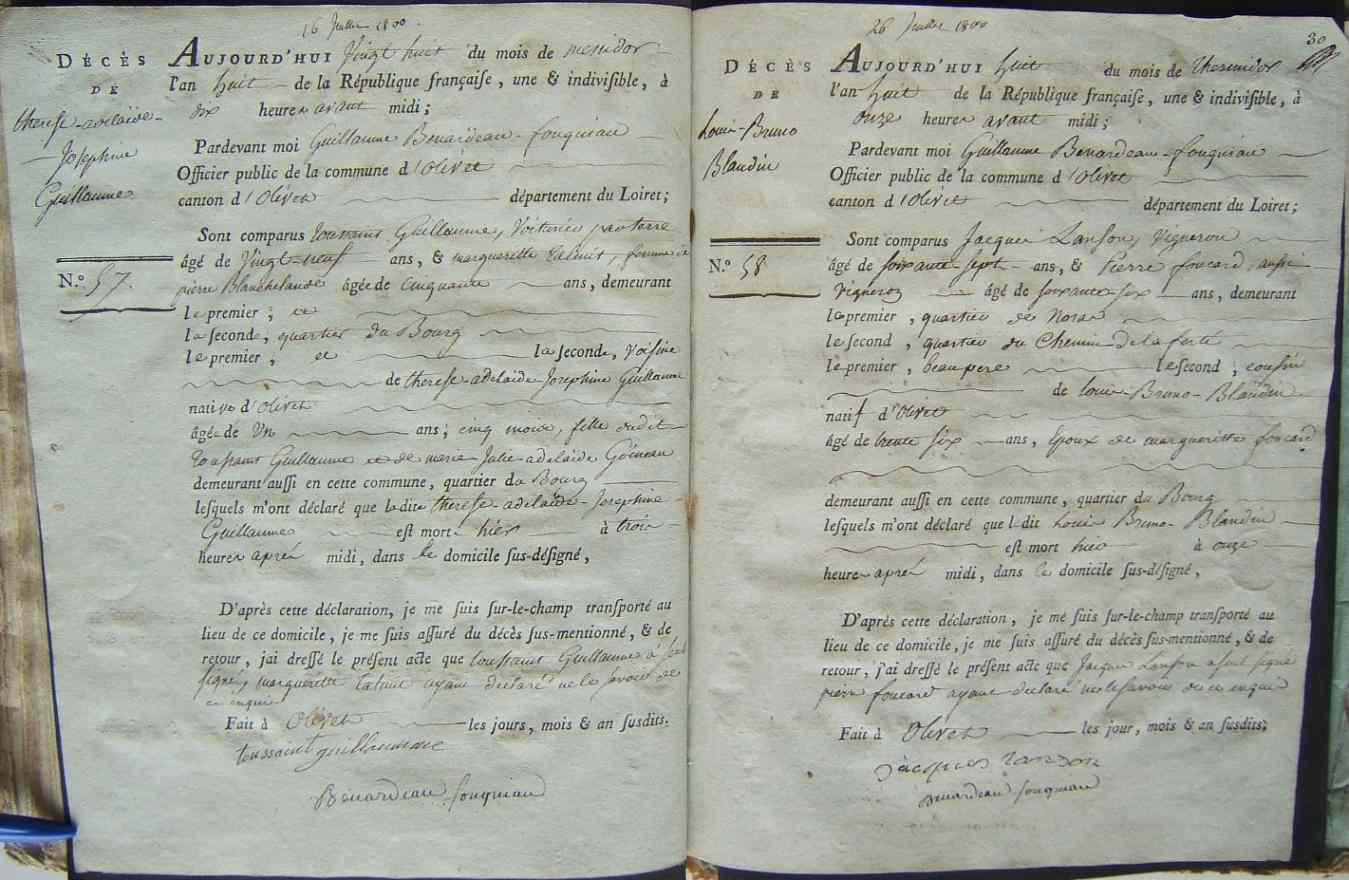 16 Juillet 1800.
DÉCÈS
DE
therese-adelaïde-
Josephine
Guillaume
N.o 57.
AUJOURD'HUI Vingt huit du mois de messidor
l'an huit de la République françaiſe, une & indiviſible, à
dix heures avant midi ;
Pardevant moi Guillaume Benardeau-fouquiau
Officier public de la commune d'Olivet
canton d'Olivet département du Loiret ;
Sont comparus toussaint Guillaume, Voiturier par terre
âgé de Vingt-neuf ans, & margueritte , femme de
pierre Blanchelande âgée de Cinquante ans, demeurant
le premier, et
la ſeconde, quartier du Bourg
le premier, et la ſeconde, voisine
de therese-adelaïde-Josephine Guillaume
native d'Olivet
âgée de Un ans ; cinq mois, fille dudit
toussaint Guillaume et de marie-Julie-adelaïde
demeurant auſſi en cette commune, quartier du Bourg
leſquels m'ont déclaré que ladite therese-adelaïde-Josephine
Guillaume eſt morte hier à trois
heures après midi, dans le domicile ſus-déſigné,
D'après cette déclaration, je me ſuis ſur-le-champ tranſporté au
lieu de ce domicile, je me ſuis aſſuré du décès ſus-mentionné, & de
retour, j'ai dreſſé le préſent acte que toussaint Guillaume a seul
signé, margueritte ayant déclaré ne le savoir de
ce enquis
Fait à Olivet les jours, mois & an ſuſdits.
toussaint guillaumme
Benardeau-fouquiau
26 Juillet 1800
30
DÉCÈS
DE
Louis-Bruno
Blandin
N.o 58
AUJOURD'HUI huit du mois de thermidor
l'an huit de la République françaiſe, une & indiviſible, à
onze heures avant midi ;
Pardevant moi Guillaume Benardeau-fouquiau
Officier public de la commune d'Olivet
canton d'Olivet département du Loiret ;
Sont comparus Jacques Lanson, Vigneron
âgé de soixante-sept ans, & Pierre foucard, aussi
Vigneron âgé de soixante-six ans, demeurant
le premier, quartier de
le ſecond, quartier du Chemin-de la ferté
le premier, beau pere le ſecond, cousin
de Louis-Bruno-Blandin
natif d'Olivet
âgé de trente six ans, Epoux de margueritte foucard
demeurant auſſi en cette commune, quartier du Bourg
leſquels m'ont déclaré que ledit Louis Bruno-Blandin
eſt mort hier à onze
heures après midi, dans le domicile ſus-déſigné,
D'après cette déclaration, je me ſuis ſur-le-champ tranſporté au
lieu de ce domicile, je me ſuis aſſuré du décès ſus-mentionné, & de
retour, j'ai dreſſé le préſent acte que Jacques Lanson a seul signé
pierre foucard ayant déclaré ne le savoir de ce enquis
Fait à Olivet les jour, mois & an ſuſdits.
jacques lanson
Benardeau fouquiau